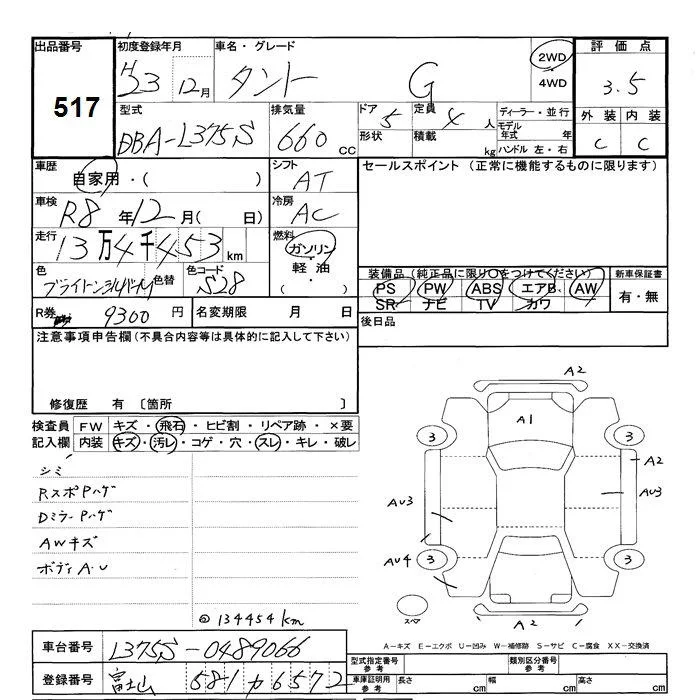 出品番号 初度登録年月 車名・グレード 2WD 評価点
517 H23 12月 タント G 4WD 3.5
型式 排気量 ドア 定員 ディーラー・並行 外装 内装
DBA-L375S 660 CC 5 4人 モデル年式 年 C C
形状 積載 kg ハンドル 左・右
車歴 シフト セールスポイント (正常に機能するものに限ります)
自家用・( ) AT
車検 冷房
R8年12月( 日) AC
走行 燃料
13万4千453km ガソリン・
軽油
( ・ )
色 色替 色コード 装備品(純正品に限り○をつけてください) 新車保証書
S28 PS PW ABS エアB. AW 有・無
SR ナビ TV カワ
R券 9300円 名変期限 月 日 後日品
注意事項申告欄(不具合内容等は具体的に記入して下さい)
修復歴 有 〔箇所 〕
検査員 FW キズ・飛石・ヒビ割・リペア跡・×要
記入欄 内装 キズ・汚レ・コゲ・穴・スレ・キレ・破レ
シミ
RスポPハゲ
DミラーPハゲ
AWキズ
ボディA.U
@134454km
A2
A1
3 3
A2
AU3 AU3
AU4 3 3
スペア
A2
A-キズ E-エクボ U-凹み W-補修跡 S-サビ C-腐食 XX-交換済
車台番号 L375S-0489066 型式指定番号 参考 類別区分番号 参考
登録番号 富士山 581 カ 6572 車庫証明用 参考 長さ cm 幅 cm 高さ cm